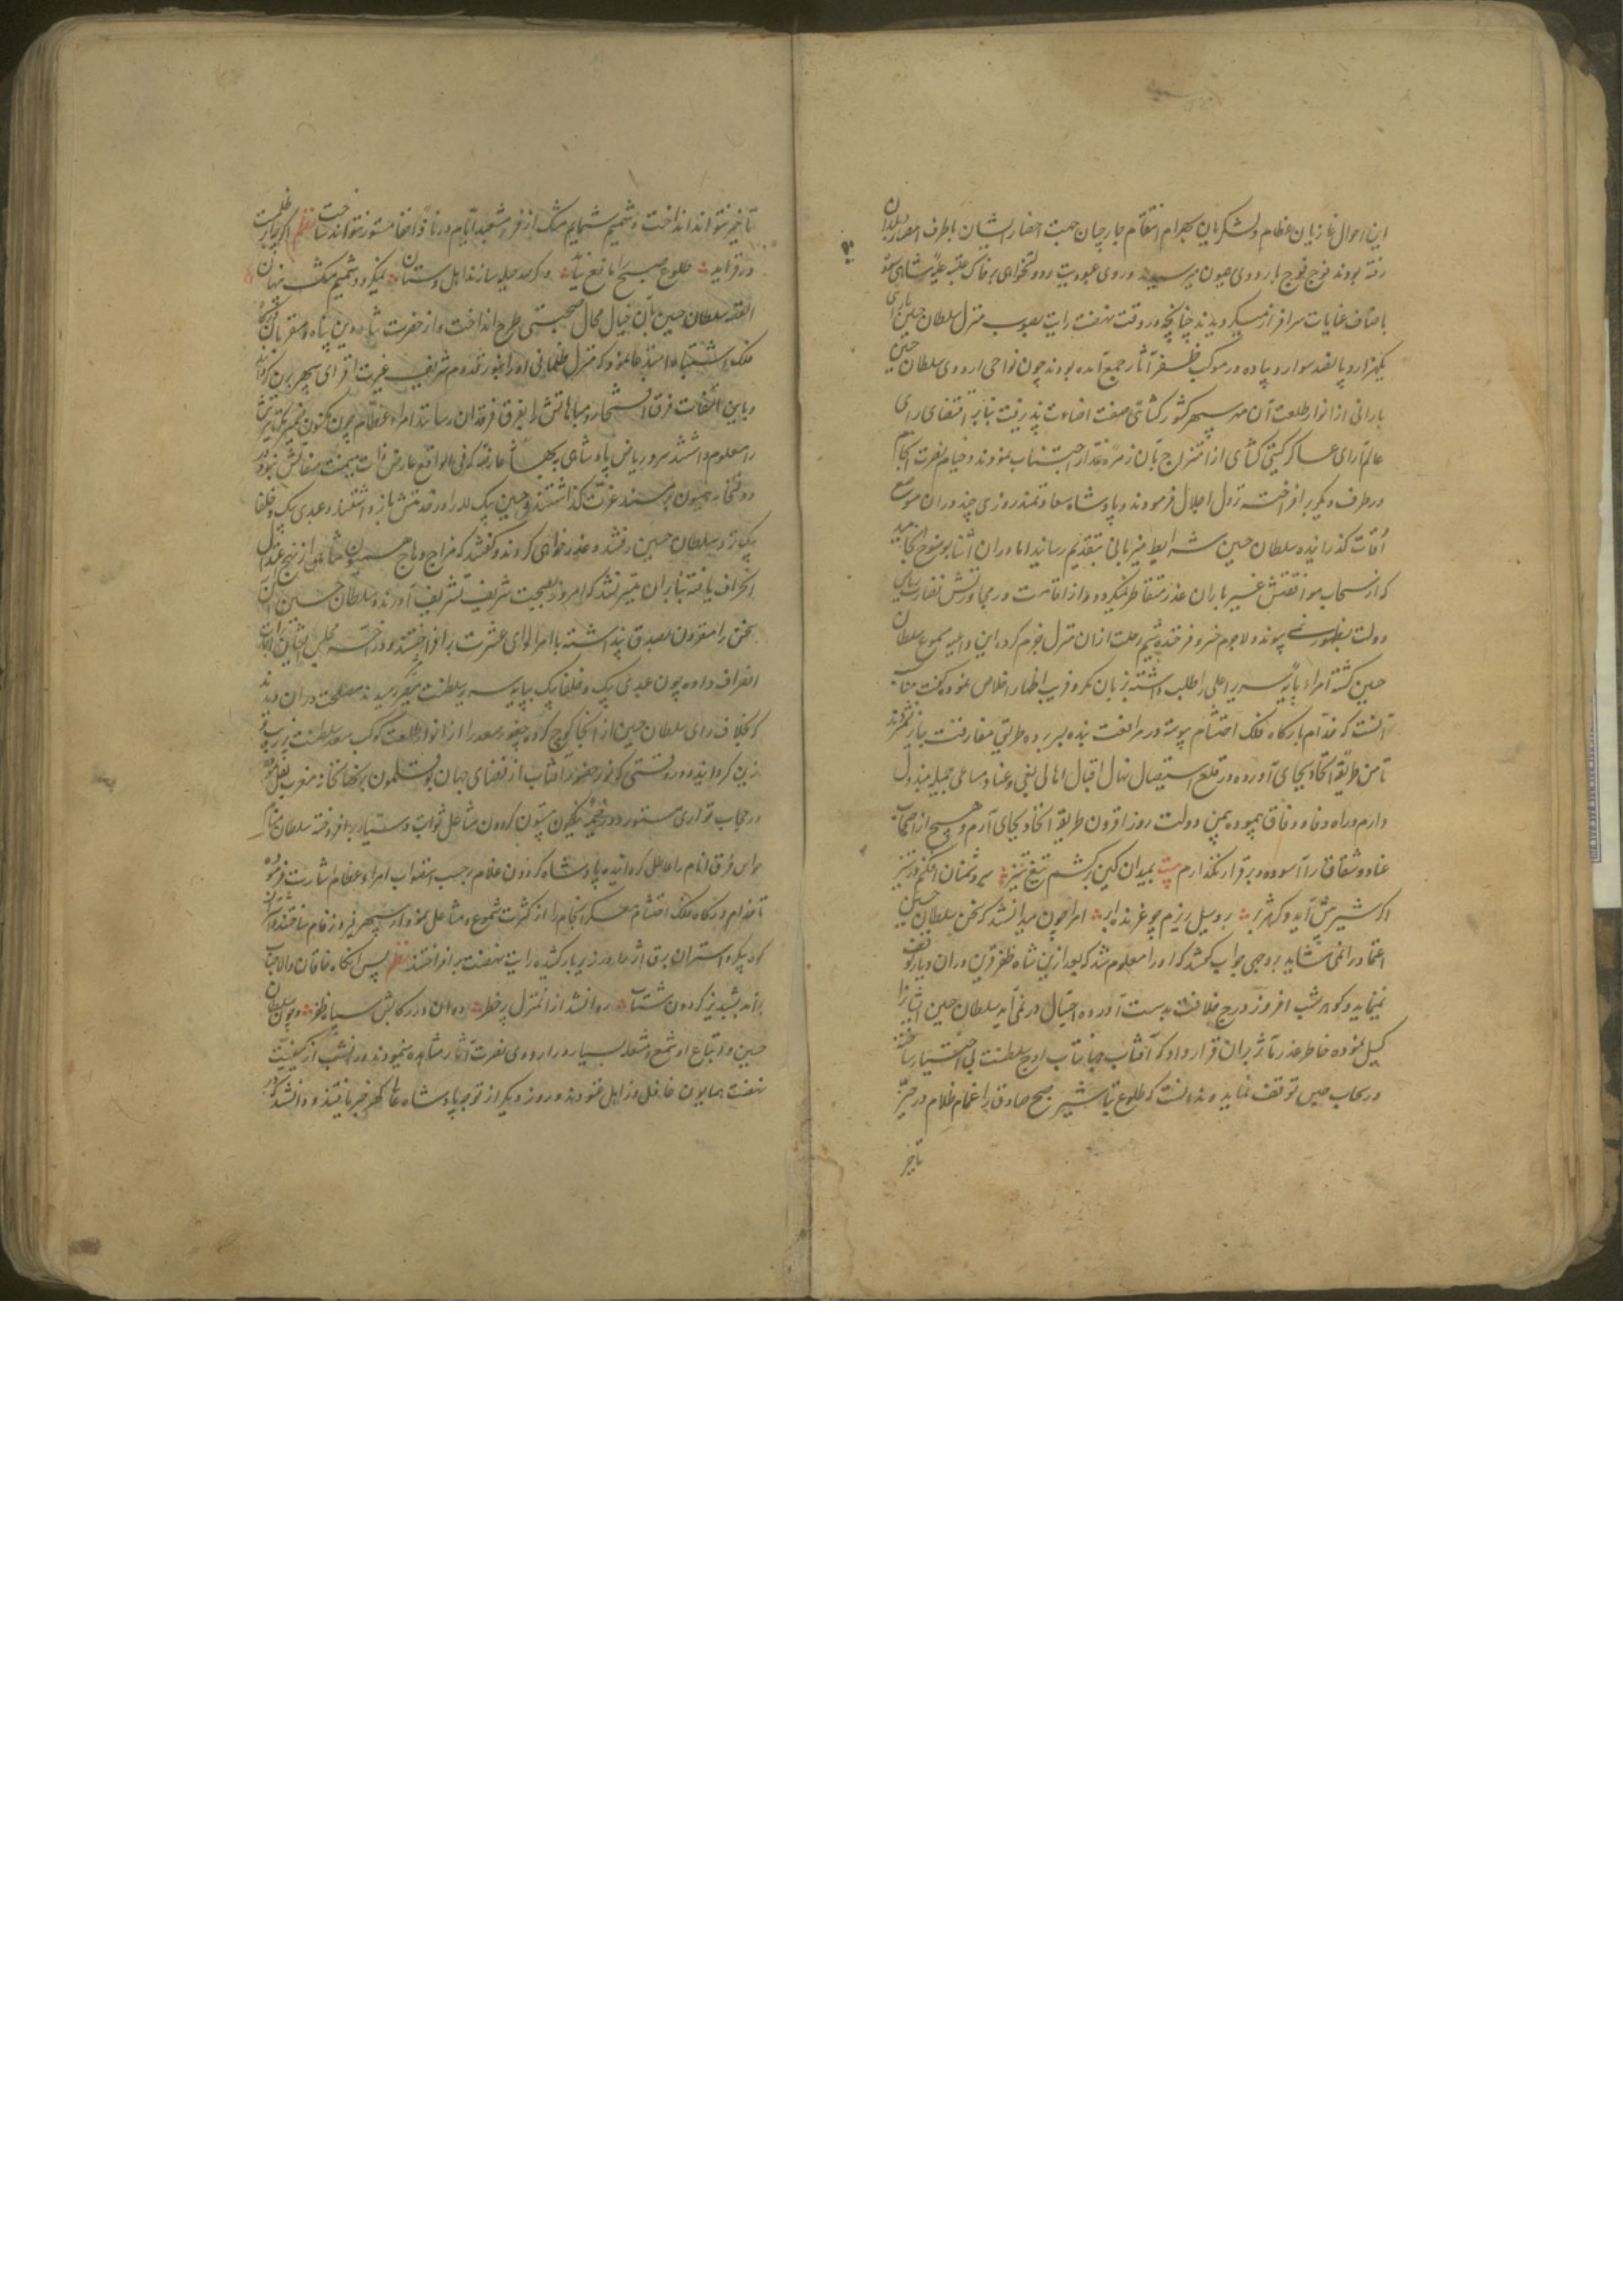 این احوال غازیان عظام و لشکریان بهرام انتقام جارچیان جهت احضار ایشان باطراف امصار و بلدان
رفته بودند فوج فوج باردوی همیون میرسیدند و روی عبودیت و دولتخواهی بر خاک عتبه علیه شاهی سوده
باصناف عنایات سرافراز میگردیدند چنانچه در وقت نهضت رایت بصوب منزل سلطان حسین بارانی
یکهزار و پانصد سوار و پیاده در موکب ظفر آثار جمع آمده بودند چون نواحی اردوی سلطان حسین
بارانی از انوار طلعت آن مهر سپهر کشورکشائی صفت اضاءت پذیرفت بنابر اقتضای رای
عالم آرای عساکر گیتی گشای از امتزاج بآن زمره غدار اجتناب نمودند و خیام نصرت انجام
در طرف دیگر برافراخته نزول اجلال فرمودند و پادشاه سعادتمند روزی چند در ان موضع
اوقات گذرانیده سلطان حسین شرایط میزبانی بتقدیم رسانید اما در ان اثنا بوضوح انجامید
که از سحاب موافقتش غیر باران عذر متقاطر نمیگردد و از اقامت در مجاورتش
دولت بظهور نمی پیوندد لاجرم خسرو فرخنده شیم رحلت از ان منزل جزم کرده این داعیه مسموع سلطان
حسین گشته امراء پایه سریر اعلی را طلب داشته زبان مکر و فریب اظهار اخلاص نموده گفت مناسب
آنست که خدام بارگاه فلک احتشام پیوسته در مرافقت بنده بسر برده طریق مفارقت نپذیرند
تا من طریقه اتحاد بجای آورده در قلع و استیصال نهال اقبال اهالی بغی و عناد مساعی جمیله مبذول
دارم و راه وفاء و وفاق پیموده بیمن دولت روز افزون طریقه اتحاد بجای آرم و هیچ از اصحاب
عناد و شقاق را آسوده و برقرار نگذارم بیت بمیدان کین برکشم تیغ تیز سر دشمنان افکنم در ستیز
اگر شیر پیش آید و گر هژبر برو سیل ریزم چو غرنده ابر امرا چون میدانستند که سخن سلطان حسین
اعتماد را نمی شاید بروجهی جواب گفتند که او را معلوم شد که بعد ازین شاه ظفر قرین در ان دیار توقف
نمینماید و گوهر شب افروز درج خلافت بدست آورده احتیال در نمی آید سلطان حسین ایشانرا
گسیل نموده خاطر غدر مآثر بران قرار داد که آفتاب جهانتاب اوج سلطنت بی اختیار ساخته
در سحاب حبس توقف نماید و ندانست که طلوع تباشیر صبح صادق را غمام ظلام در حیز
تاخیر
تاخیر نتواند انداخت و شمیم شمایم مشک از فر مشعبد ایام در نافه اخفا مستور نتواند ساخت نظم اگر چه ابر ظلمت
در فزاید طلوع صبح را مانع نیاید و گر صد حیله سازند اهل دستان نمیگردد شمیم مشک پنهان
القصه سلطان حسین بآن خیال محال صحبتی طرح انداخت و از حضرت شاه دین پناه و مقربان درگاه
فلک اشتباه استدعا نمود که منزل ظلمانی او را بنور قدوم شریف غیرت افزای سپهر برین گردانند
و باین التفات فرق افتخار و مباهاتش را بفرق فرقدان رسانند امراء عظام چون مکنون ضمیر
را معلوم داشتند سرو ریاض پادشاهی به بهانه عارضه که فی الواقع عارض ذات میمنت صفاتش نبود
دولتخانه همیون بر مسند عزت گذاشتند و حسین بیک لله را در خدمتش بازداشتند و عبدی بیک و خلفا
بیک نزد سلطان حسین رفتند و عذرخواهی کردند و گفتند که مزاج وهاج همیون شاهی از نهج اعتدال
انحراف یافته بنابران میسر نشد که امروز بصحبت شریف تشریف آورند و سلطان حسین آن
سخن را مقرون بصدق پنداشته با امرا لوای عشرت برافراختند و در آخر مجلس ایشان را اجازت
انصراف داده چون عبدی بیک و خلفا بیک بپایه سریر سلطنت مصیر رسیدند مصلحت در ان دیدند
که بخلاف رای سلطان حسین از آنجا کوچ کرده چخور سعد را از انوار طلعت کوکب سعد سلطنت زیب و
زین گردانند و در وقتی که نور حضور آفتاب از فضای جهان بوقلمون بنهانخانه مغرب نقل نموده
در حجاب تواری مستور و در خیمه نیلگون بیستون گردون مشاعل ثوابت و سیار برافروخته سلطان منام
حواس فرق انام را معطل گردانیده پادشاه گردون غلام برحسب استصواب امراء عظام اشارت فرموده
تا خدام درگاه فلک احتشام معسکر انجام را از کثرت شموع و مشاعل نمودار سپهر فیروزه فام ساختند
کوه پیکر و استران برق اثر را در زیر بار کشیده رایت نهضت برافراختند نظم پس آنگاه خاقان والاجناب
برآمد بشبدیز گردون شتاب روانشد از ان منزل پر خطر دوان در رکابش سپاه ظفر و چون سلطان
حسین و اتباع او شمع و مشعله بسیار در اردوی نصرت آثار مشاهده مینمودند در آنشب از کیفیت
نهضت همایون غافل و ذاهل غنودند و روز دیگر از توجه پادشاه عالم گهر خبر یافتند و دانستند که